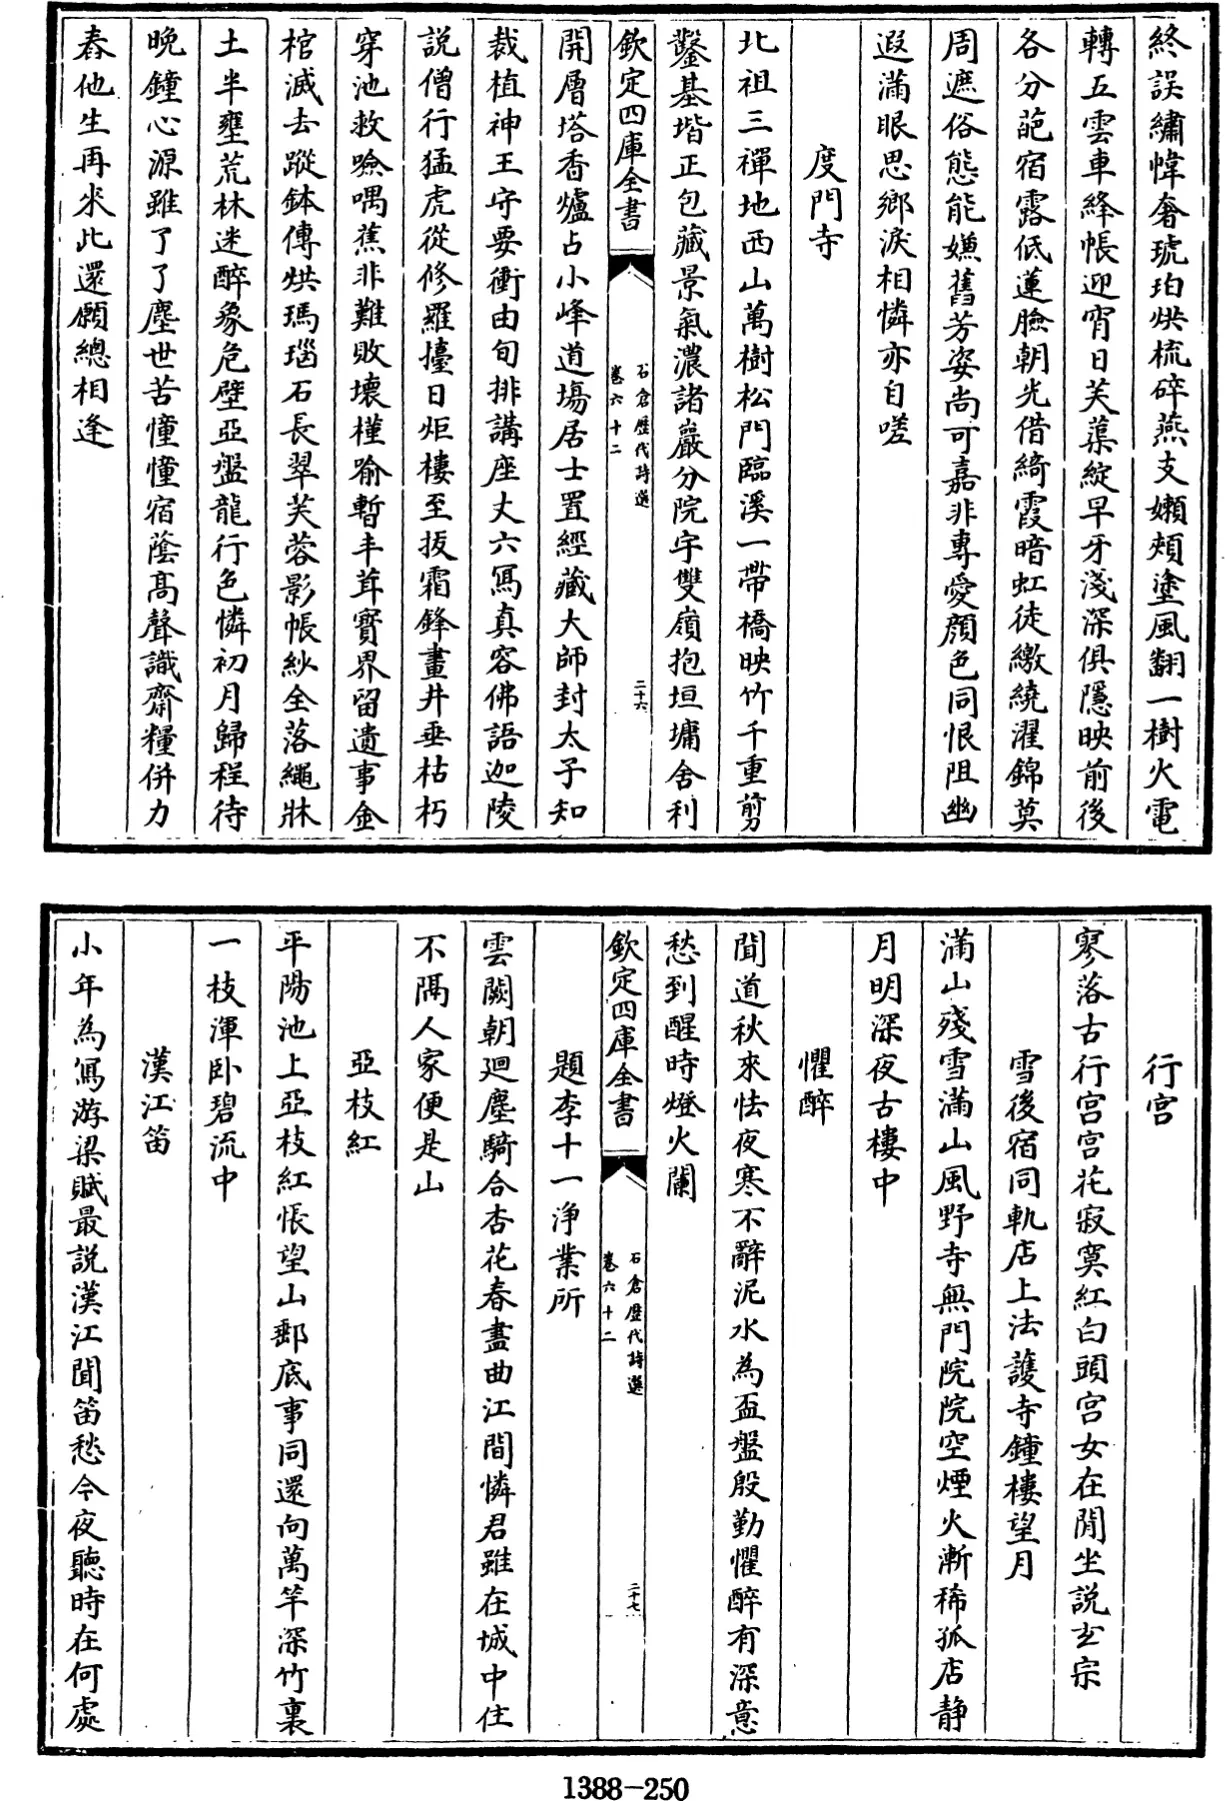 終誤繡幃奢琥珀烘梳碎燕支嬾頰塗風翻一樹火電
轉五雲車絳帳迎宵日芙蕖綻早牙淺深俱隱映前後
各分葩宿露低蓮臉朝光借綺霞暗虹徒繳繞濯錦莫
周遮俗態能嫌舊芳姿尚可嘉非專愛顔色同恨阻幽
遐滿眼思鄉淚相憐亦自嗟
度門寺
北祖三禪地西山萬樹松門臨溪一帶橋映竹千重剪
鑿基堦正包藏景氣濃諸巖分院宇雙嶺抱垣墉舍利
欽定四庫全書
石倉歷代詩選
卷六十二
二十六
開層塔香爐占小峰道場居士置經藏大師封太子知
裁植神王守要衝由旬排講座丈六寫真容佛語迦陵
説僧行猛虎從修羅擡日炬樓至拔霜鋒畫井垂枯朽
穿池救噞喁蕉非難敗壞槿喻暫丰茸寶界留遺事金
棺滅去蹤鉢傳烘瑪瑙石長翠芙蓉影帳紗全落繩牀
土半壅荒林迷醉象危壁亞盤龍行色憐初月歸程待
晩鐘心源雖了了塵世苦憧憧宿蔭髙聲識齋糧併力
舂他生再來此還願總相逢
行宫
寥落古行宫宫花寂寞紅白頭宫女在閒坐説玄宗
雪後宿同軌店上法護寺鐘樓望月
滿山殘雪滿山風野寺無門院院空煙火漸稀孤店静
月明深夜古樓中
懼醉
聞道秋來怯夜寒不辭泥水為盃盤殷勤懼醉有深意
愁到醒時燈火闌
欽定四庫全書
石倉歷代詩選
卷六十二
二十七
題李十一浄業所
雲闕朝迴塵騎合杏花春盡曲江間憐君雖在城中住
不隔人家便是山
亞枝紅
平陽池上亞枝紅悵望山郵底事同還向萬竿深竹裏
一枝渾卧碧流中
漢江笛
小年為寫游梁賦最説漢江聞笛愁今夜聽時在何處
1388-250